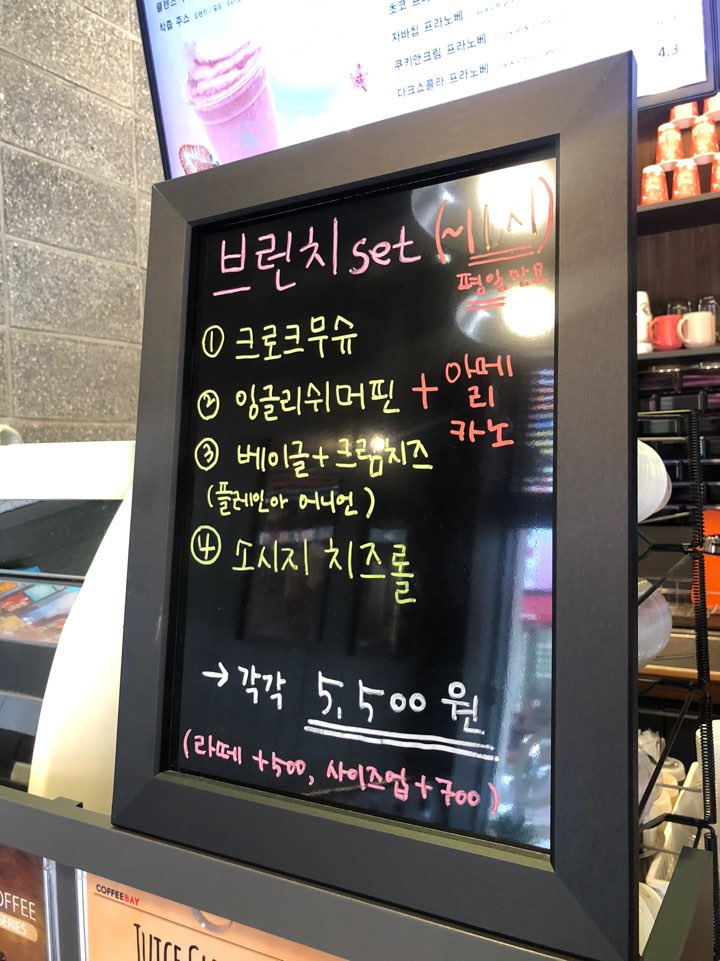 착즙 주스
자바칩 프라노베
쿠키앤크림 프라노베
다크쇼콜라 프라노베
4.3
브런치 set (~11시)
평일만요
① 크로크무슈
② 잉글리쉬머핀 + 아메
리
카노
③ 베이글 + 크림치즈
(플레인 아 어니언)
④ 소시지 치즈롤
→ 각각 5,500원
(라떼 +500, 사이즈업 +700)
OFFEE
SERIES
COFFEEBAY